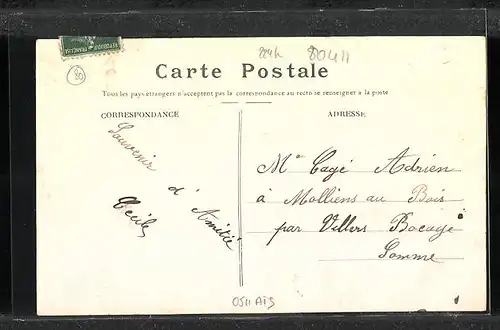 RÉPUBLIQUE FRANÇAISE
80
224h 80411
Carte Postale
Tous les pays étrangers n'acceptent pas la correspondance au recto se renseigner à la poste
CORRESPONDANCE
Souvenir
d'Amitié
Cécile
ADRESSE
Mr Cagé Adrien
à Molliens au Bois
par Villers Bocage
Somme
0511 A1S